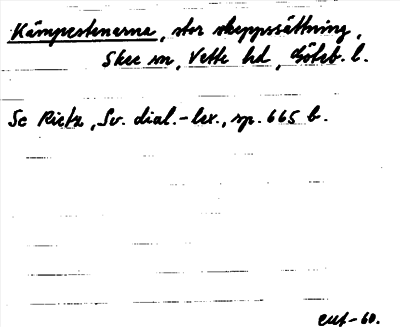 Kämpestenarne, stor skeppssättning,
Skee sn, Vette hd, Göteb. l.
Se Rietz, Sv. dial.-lex., sp. 665 b.
-60.